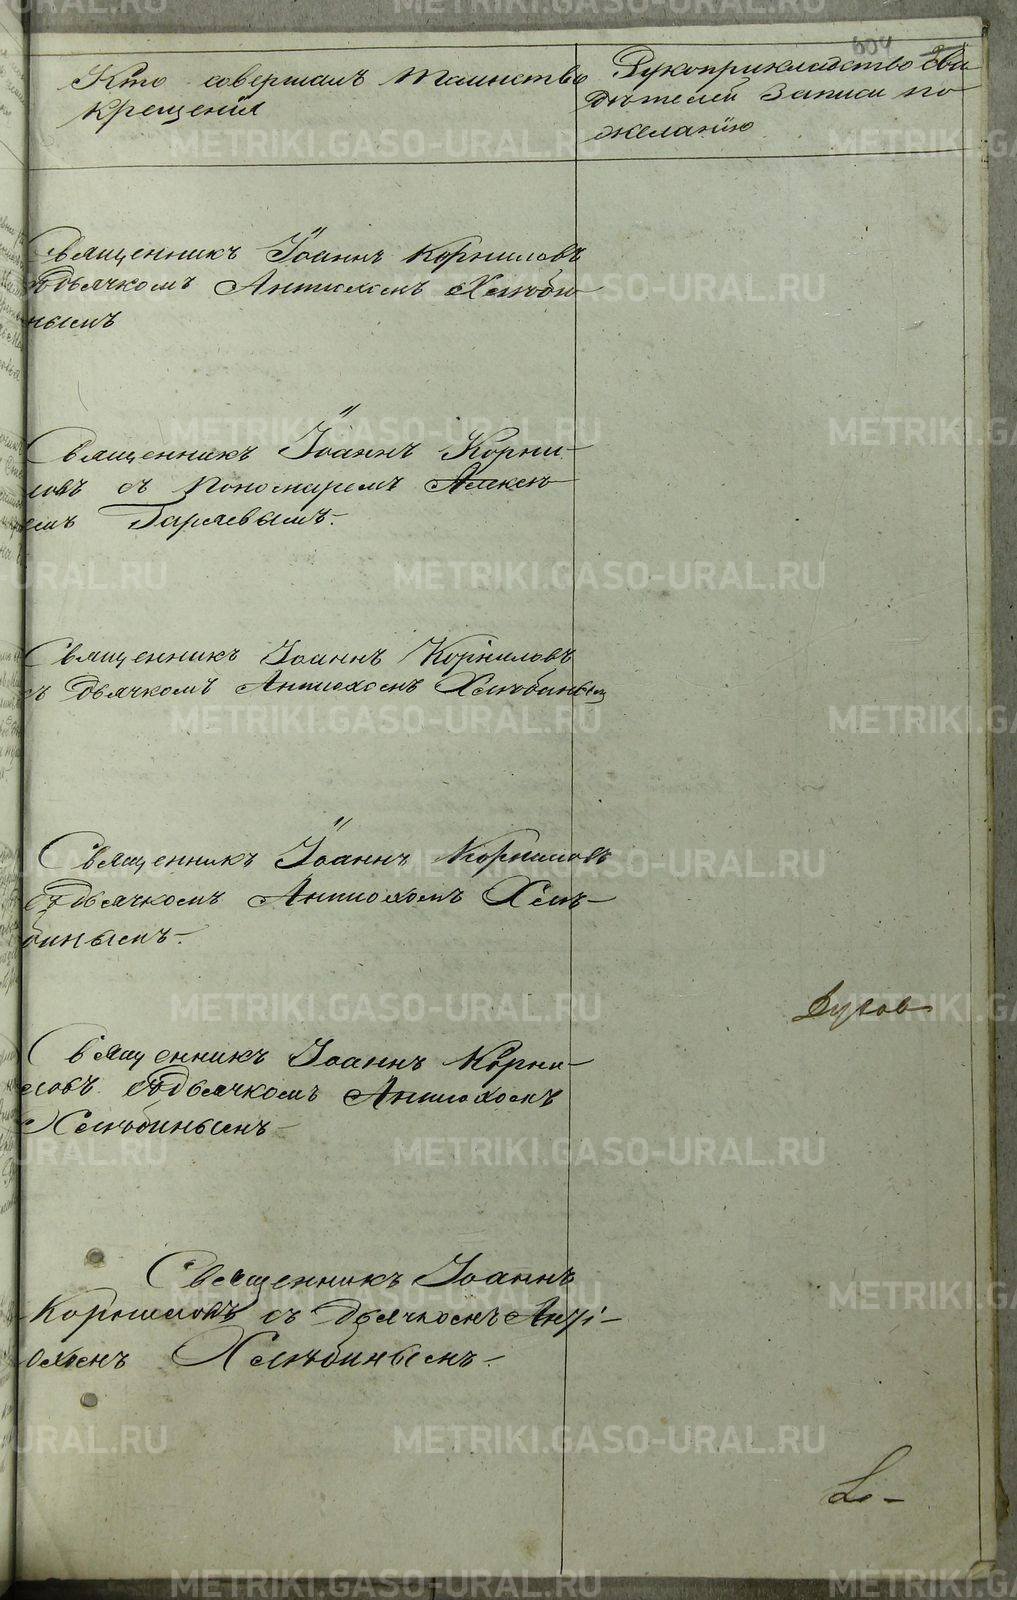 604
Кто совершалъ таинство
крещенія
Рукоприкладство сви
дѣтелей записи по
желанію
Священникъ Іоаннъ Корниловъ
съ Дьячкомъ Антіохомъ Хлюби-
нымъ
Священникъ Іоаннъ Корни-
ловъ съ Пономаремъ Алексѣ-
емъ
Священникъ Іоаннъ Корниловъ
съ Дьячкомъ Антіохомъ Хлюбинымъ
Священникъ Іоаннъ Корниловъ
съ Дьячкомъ Антіохомъ Хлю-
бинымъ.
Священникъ Іоаннъ Корни-
ловъ съ Дьячкомъ Антіохомъ
Хлюбинымъ
Священникъ Іоаннъ
Корниловъ съ Дьячкомъ Анті-
охомъ Хлюбинымъ.
METRIKI.GASO-URAL.RU